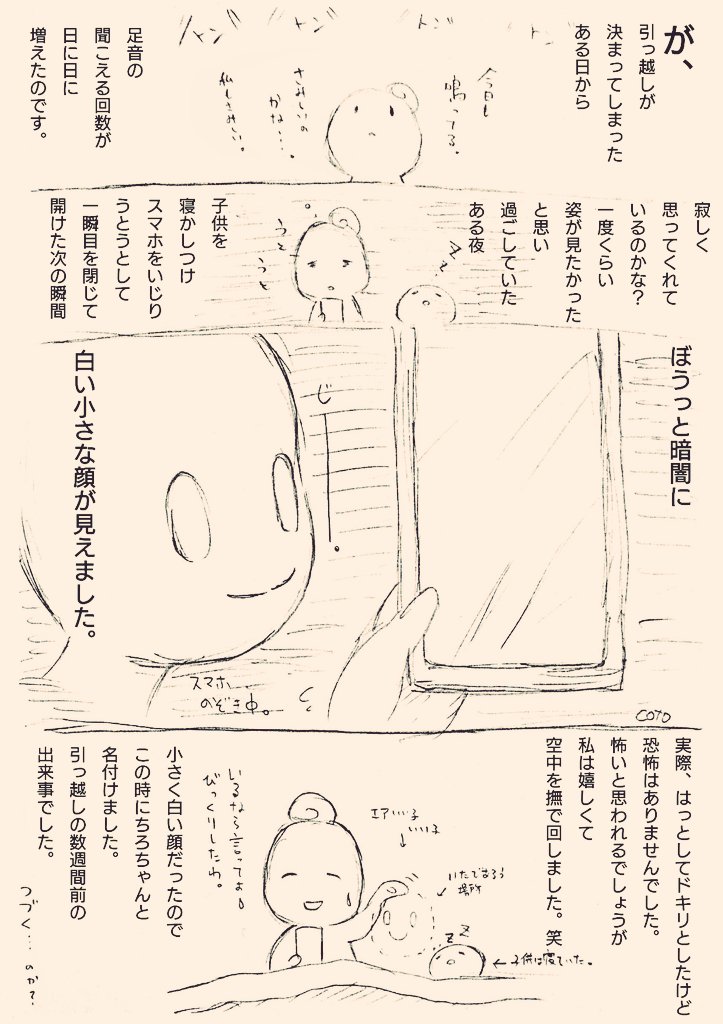 が、
引っ越しが
決まってしまった
ある日から
トン
トン
トン
トン
今日も
鳴ってる。
さみしいの
かな…。
私もさみしい。
足音の
聞こえる回数が
日に日に
増えたのです。
寂しく
思ってくれて
いるのかな?
一度くらい
姿が見たかった
と思い
過ごしていた
ある夜
zzz
うと
うと
子供を
寝かしつけ
スマホをいじり
うとうとして
一瞬目を閉じて
開けた次の瞬間
ぼうっと暗闇に
じ―――。
白い小さな顔が見えました。
スマホ
のぞき中。
COTO
実際、はっとしてドキリとしたけど
恐怖はありませんでした。
怖いと思われるでしょうが
私は嬉しくて
空中を撫で回しました。笑
エアいい子
いい子
いたであろう
場所
zz
←子供は寝ていた。
いるなら言ってよ。
びっくりしたわ。
小さく白い顔だったので
この時にちろちゃんと
名付けました。
引っ越しの数週間前の
出来事でした。
つづく…のか?